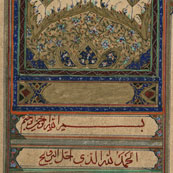 بسم الله الرحمن الرحيم
الحمد لله الذي احل النكاح